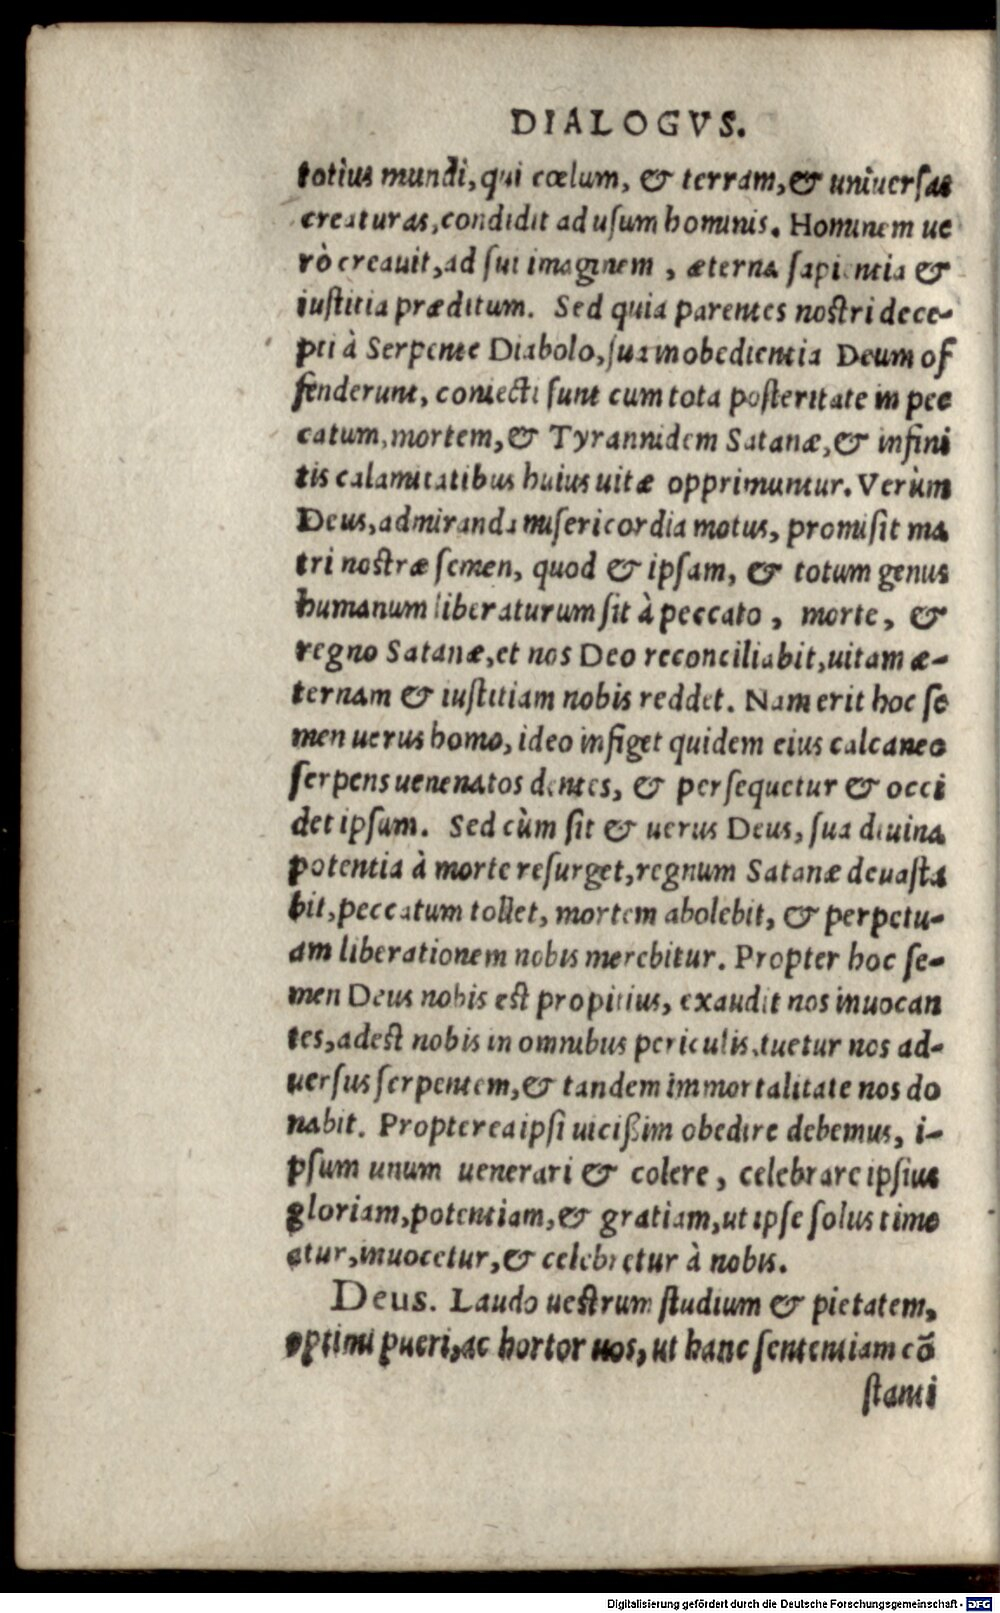 DIALOGVS.
totius mundi, qui cœlum, & terram, & uniuersas
creaturas, condidit ad usum hominis. Hominem ue
rò creauit, ad sui imaginem, æterna sapientia &
iustitia præditum. Sed quia parentes nostri dece-
pti à Serpente Diabolo, sua inobedientia Deum of
fenderunt, coniecti sunt cum tota posteritate in pec
catum, mortem, & Tyrannidem Satanæ, & infini
tis calamitatibus huius uitæ opprimuntur. Verùm
Deus, admiranda misericordia motus, promisit ma
tri nostræ semen, quod & ipsam, & totum genus
humanum liberaturum sit à peccato, morte, &
regno Satanæ, et nos Deo reconciliabit, uitam æ-
ternam & iustitiam nobis reddet. Nam erit hoc se
men uerus homo, ideo infiget quidem eius calcaneo
serpens uenenatos dentes, & persequetur & occi
det ipsum. Sed cùm sit & uerus Deus, sua diuina
potentia à morte resurget, regnum Satanæ deuasta
bit, peccatum tollet, mortem abolebit, & perpetu-
am liberationem nobis merebitur. Propter hoc se-
men Deus nobis est propitius, exaudit nos inuocan
tes, adest nobis in omnibus periculis, tuetur nos ad-
uersus serpentem, & tandem immortalitate nos do
nabit. Propterea ipsi uicißim obedire debemus, i-
psum unum uenerari & colere, celebrare ipsius
gloriam, potentiam, & gratiam, ut ipse solus time
atur, inuocetur, & celebretur à nobis.
Deus. Laudo uestrum studium & pietatem,
optimi pueri, ac hortor uos, ut hanc sententiam cõ
stanti
Digitalisierung gefördert durch die Deutsche Forschungsgemeinschaft - DFG